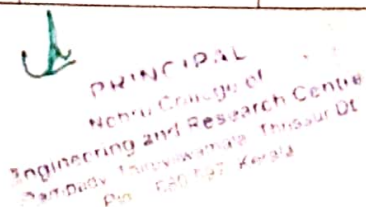 PRINCIPAL
Nehru College of
Engineering and Research Centre
Pampady, Thiruvilwamala, Thrissur Dt
Pin 680 597 Kerala